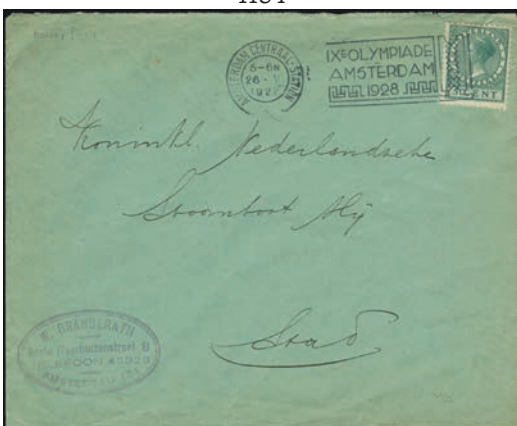 AMSTERDAM CENTRAAL-STATION
5-6N
26
IXE OLYMPIADE
AMSTERDAM
1928
CENT
Koninkl. Nederlandsche
Stoomboot Mij
Stad
BRANDERATH
TELEFOON 45923
AMSTERDAM